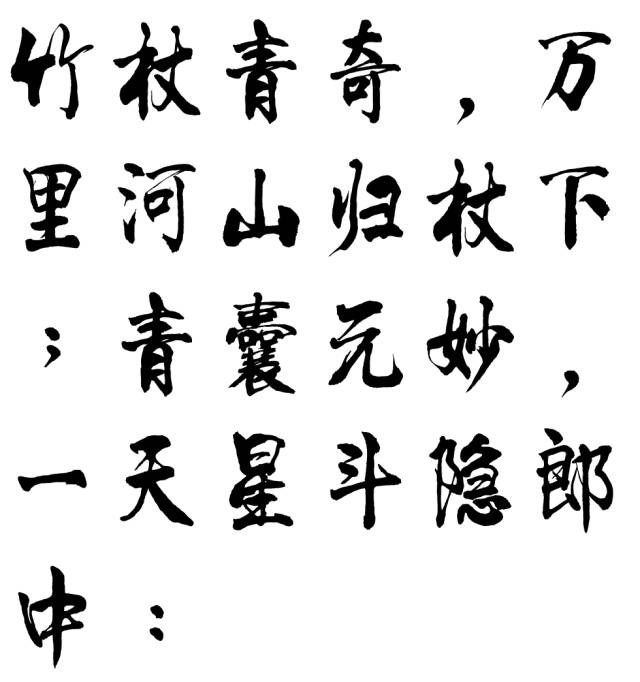 竹杖青奇，万
里河山归杖下
；青囊元妙，
一天星斗隐郎
中：